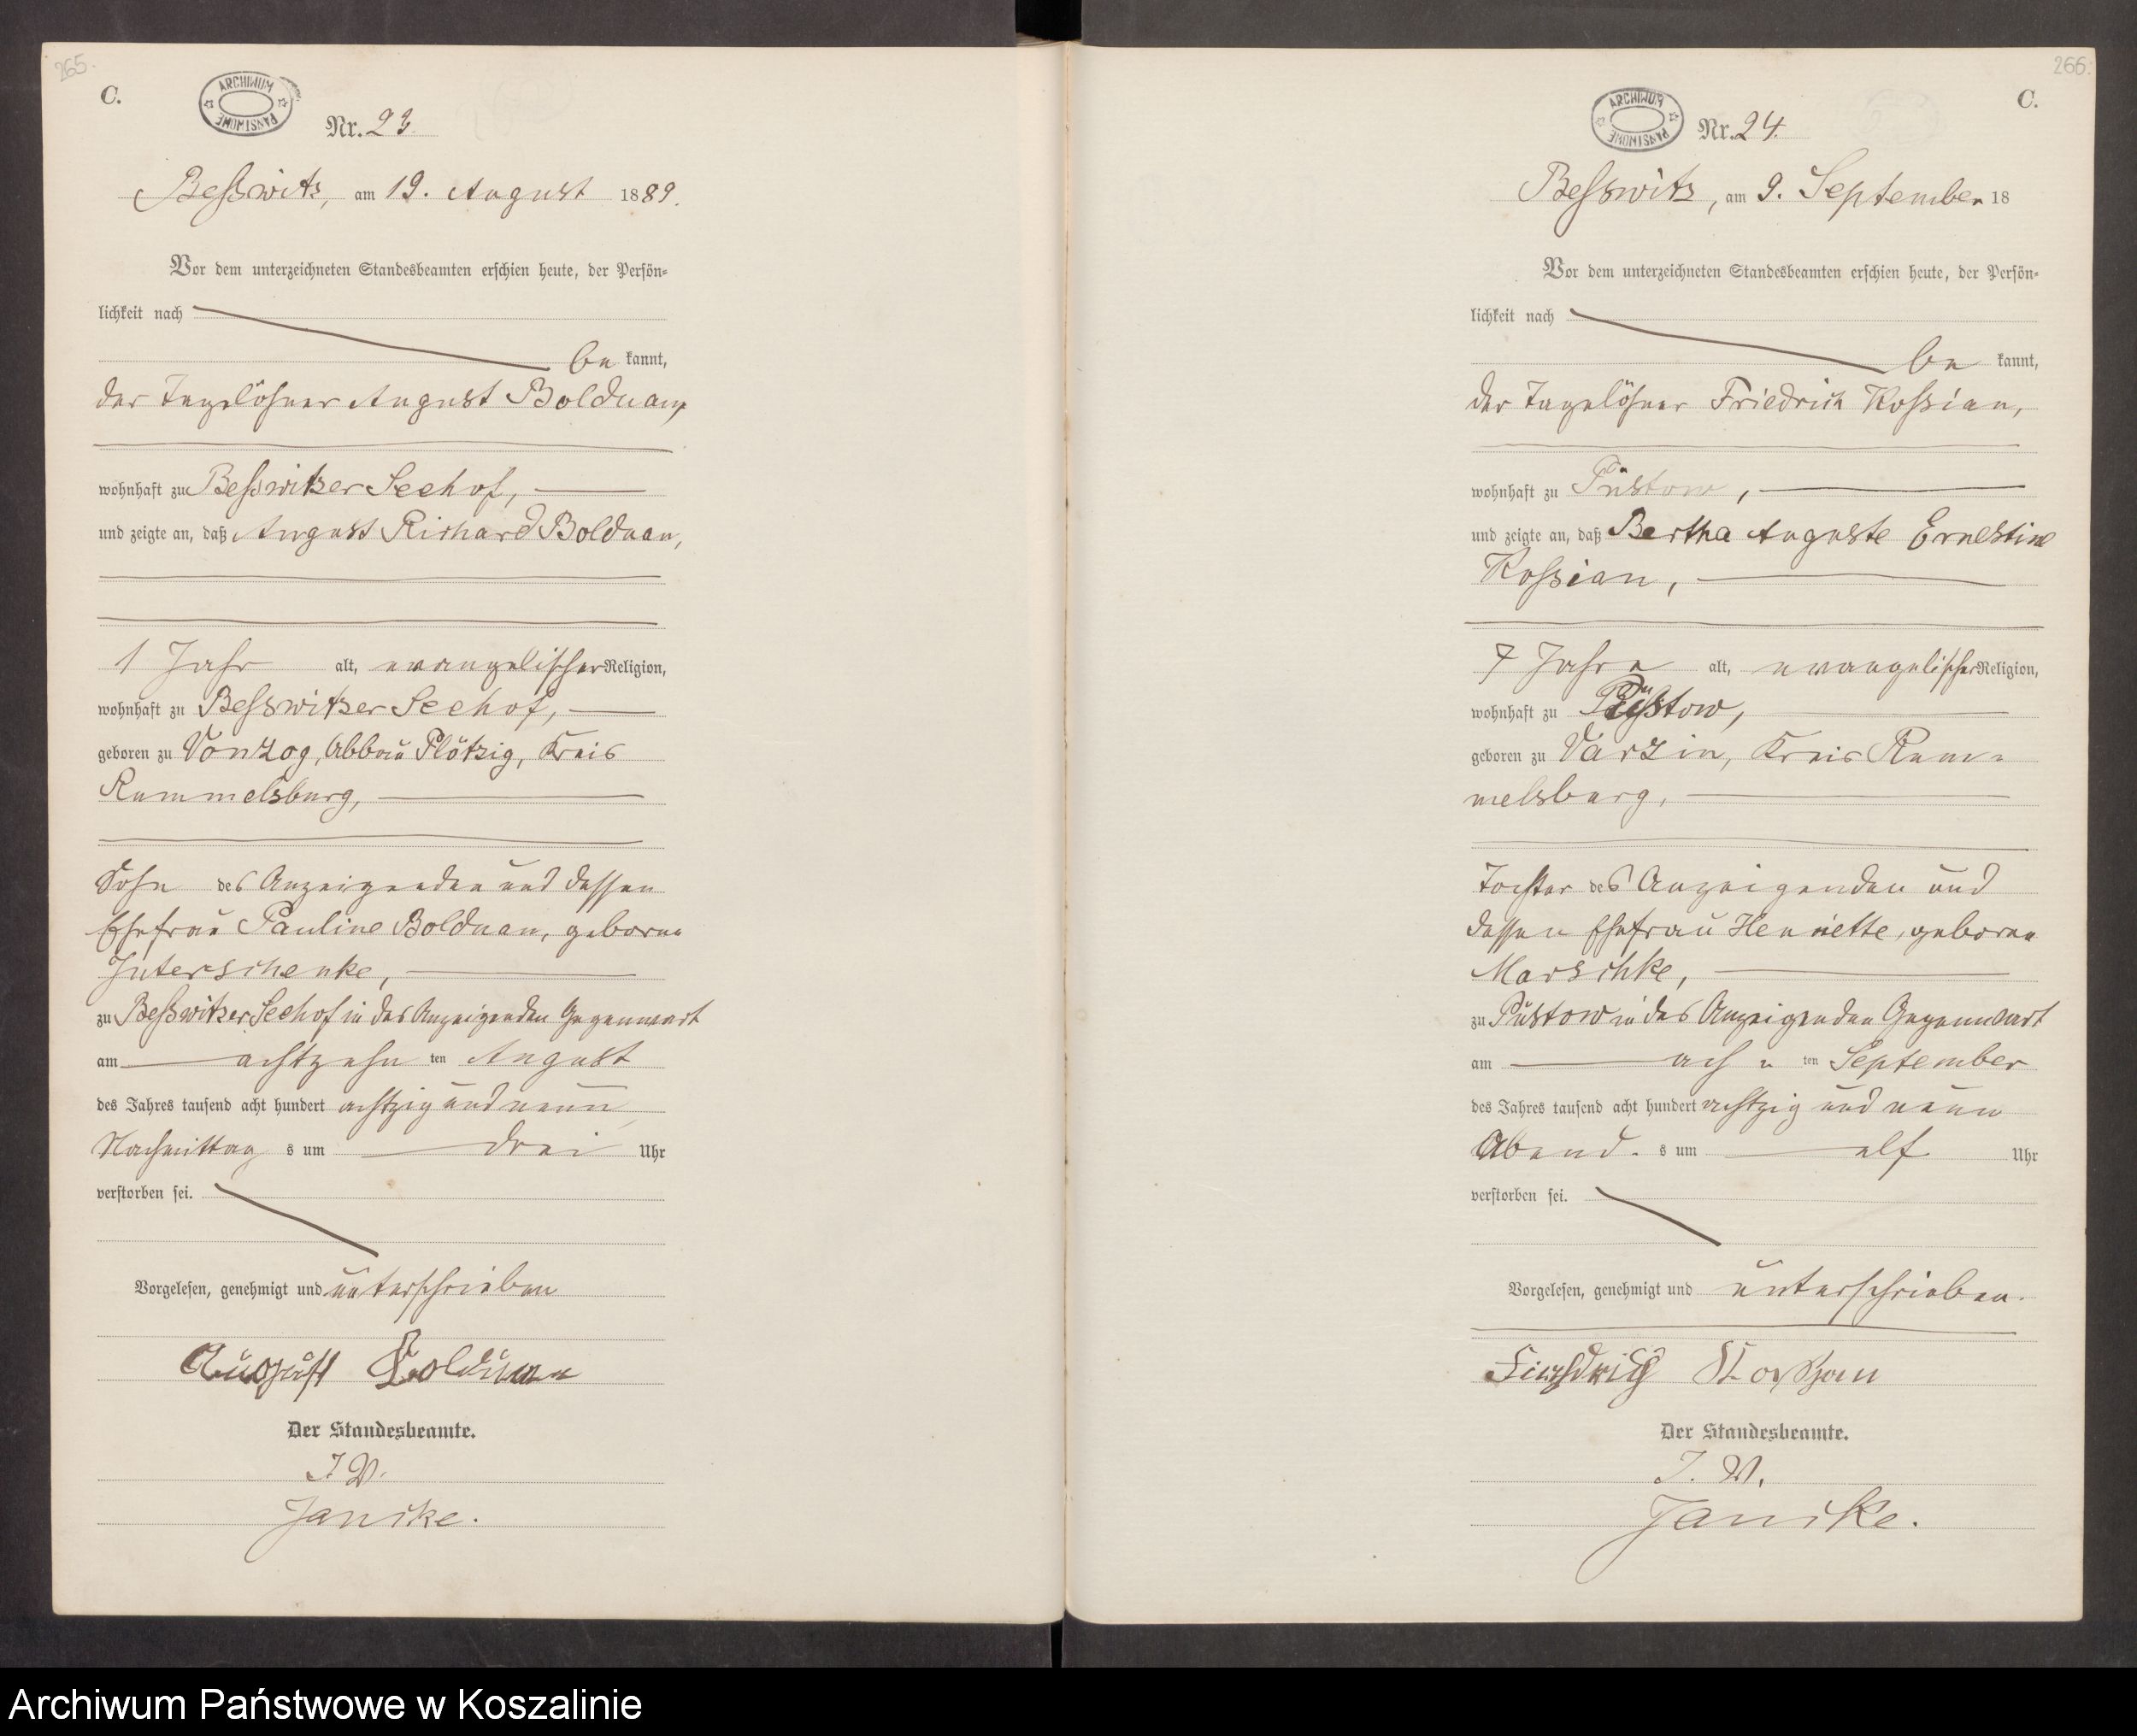 265.
C.
ARCHIWUM PAŃSTWOWE
Nr. 23.
Beßwitz, am 19. August 1889.
Vor dem unterzeichneten Standesbeamten erschien heute, der Persön=
lichkeit nach
be kannt,
der Tagelöhner August Bolduan,
wohnhaft zu Beßwitzer Seehof,
und zeigte an, daß August Richard Bolduan,
1 Jahr alt, evangelischer Religion,
wohnhaft zu Beßwitzer Seehof,
geboren zu Vonzog, Abbau Plötzig, Kreis
Rummelsburg,
Sohn des Anzeigenden und dessen
Ehefrau Pauline Bolduan, geborne
Juterschenke,
zu Beßwitzer Seehof in des Anzeigenden Gegenwart
am achtzehn ten August
des Jahres tausend acht hundert achtzig und neun
Nachmittag s um drei Uhr
verstorben sei.
Vorgelesen, genehmigt und unterschrieben
August Bolduan
Der Standesbeamte.
J. V.
Janicke.
266.
C.
ARCHIWUM PAŃSTWOWE
Nr. 24.
Beßwitz, am 9. September 18
Vor dem unterzeichneten Standesbeamten erschien heute, der Persön=
lichkeit nach
be kannt,
der Tagelöhner Friedrich Koßian,
wohnhaft zu Püstow,
und zeigte an, daß Bertha Auguste Ernestine
Koßian,
7 Jahre alt, evangelischer Religion,
wohnhaft zu Püstow,
geboren zu Varzin, Kreis Rum=
melsburg,
Tochter des Anzeigenden und
dessen Ehefrau Henriette, geborne
Marschke,
zu Püstow in des Anzeigenden Gegenwart
am ten September
des Jahres tausend acht hundert achtzig und neun
Abend s um elf Uhr
verstorben sei.
Vorgelesen, genehmigt und unterschrieben.
Friedrich Koßian
Der Standesbeamte.
J. V.
Janicke.
Archiwum Państwowe w Koszalinie